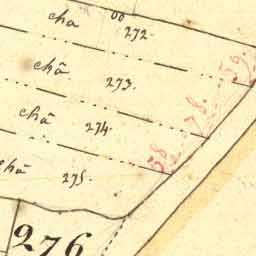 cha 272.
châ 273.
châ 274.
châ 275.
276